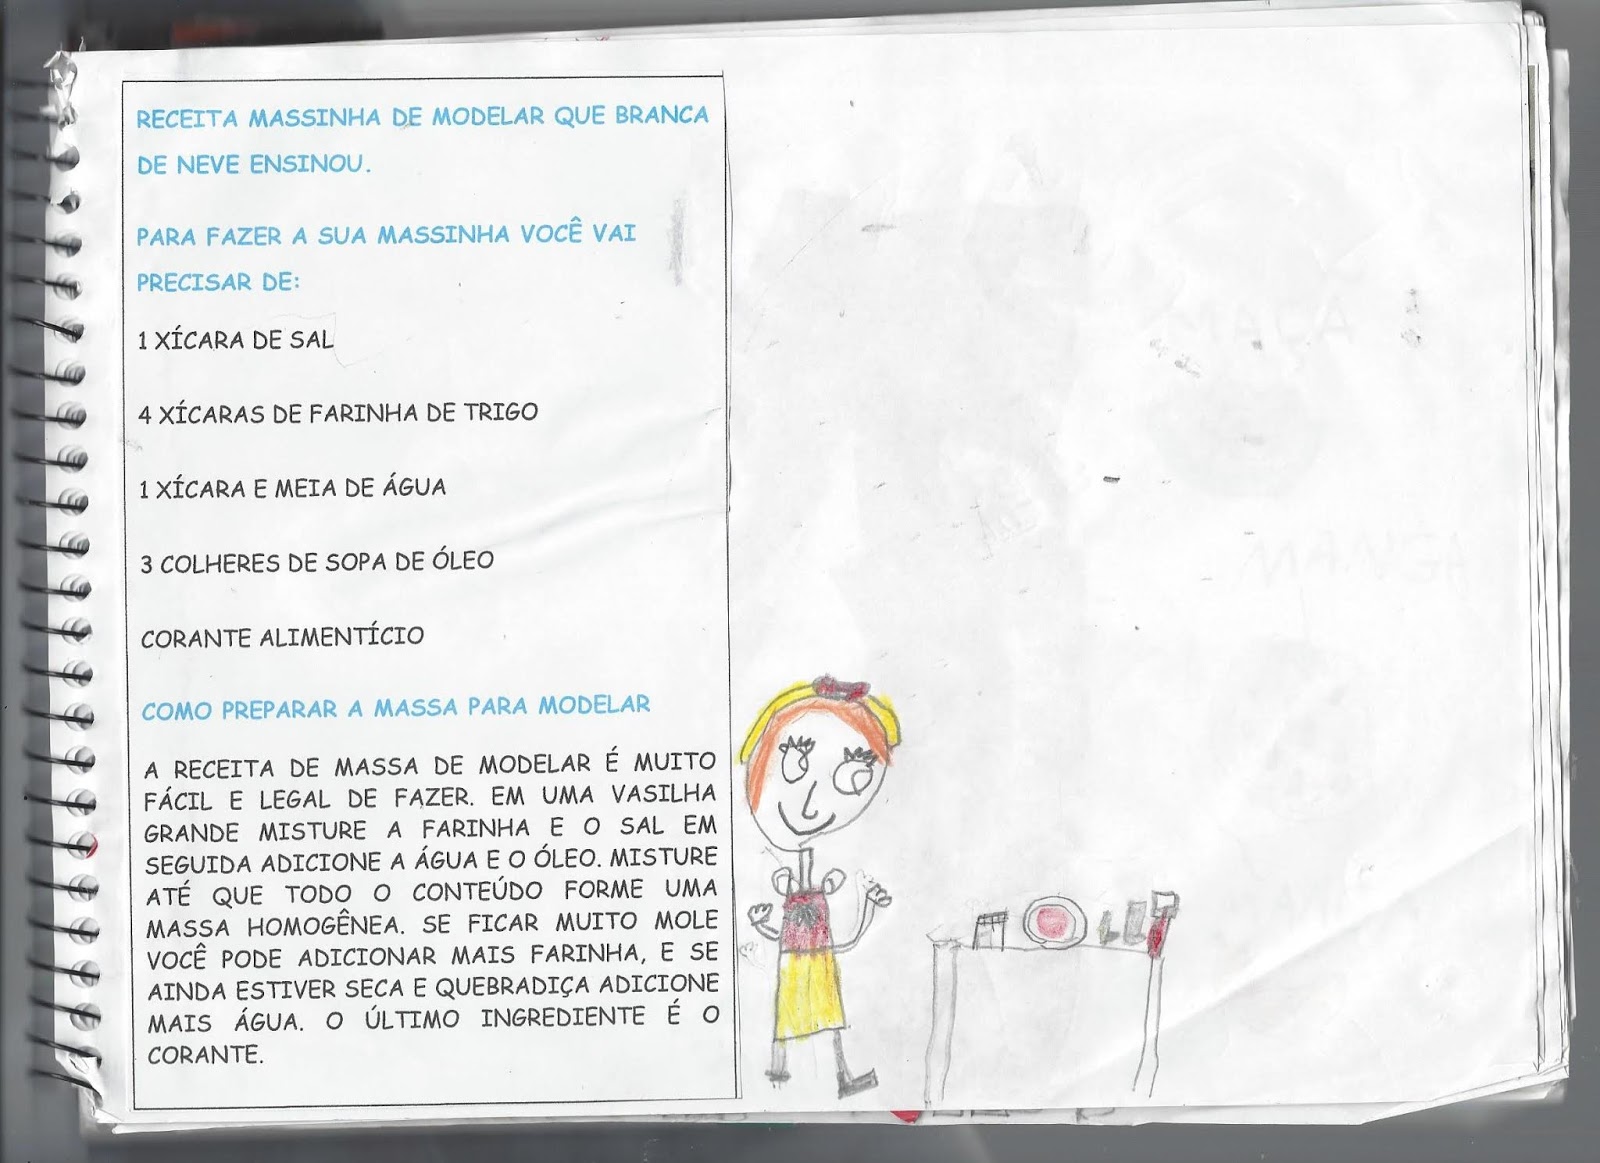 RECEITA MASSINHA DE MODELAR QUE BRANCA
DE NEVE ENSINOU.
PARA FAZER A SUA MASSINHA VOCÊ VAI
PRECISAR DE:
1 XÍCARA DE SAL
4 XÍCARAS DE FARINHA DE TRIGO
1 XÍCARA E MEIA DE ÁGUA
3 COLHERES DE SOPA DE ÓLEO
CORANTE ALIMENTÍCIO
COMO PREPARAR A MASSA PARA MODELAR
A RECEITA DE MASSA DE MODELAR É MUITO
FÁCIL E LEGAL DE FAZER. EM UMA VASILHA
GRANDE MISTURE A FARINHA E O SAL EM
SEGUIDA ADICIONE A ÁGUA E O ÓLEO. MISTURE
ATÉ QUE TODO O CONTEÚDO FORME UMA
MASSA HOMOGÊNEA. SE FICAR MUITO MOLE
VOCÊ PODE ADICIONAR MAIS FARINHA, E SE
AINDA ESTIVER SECA E QUEBRADIÇA ADICIONE
MAIS ÁGUA. O ÚLTIMO INGREDIENTE É O
CORANTE.